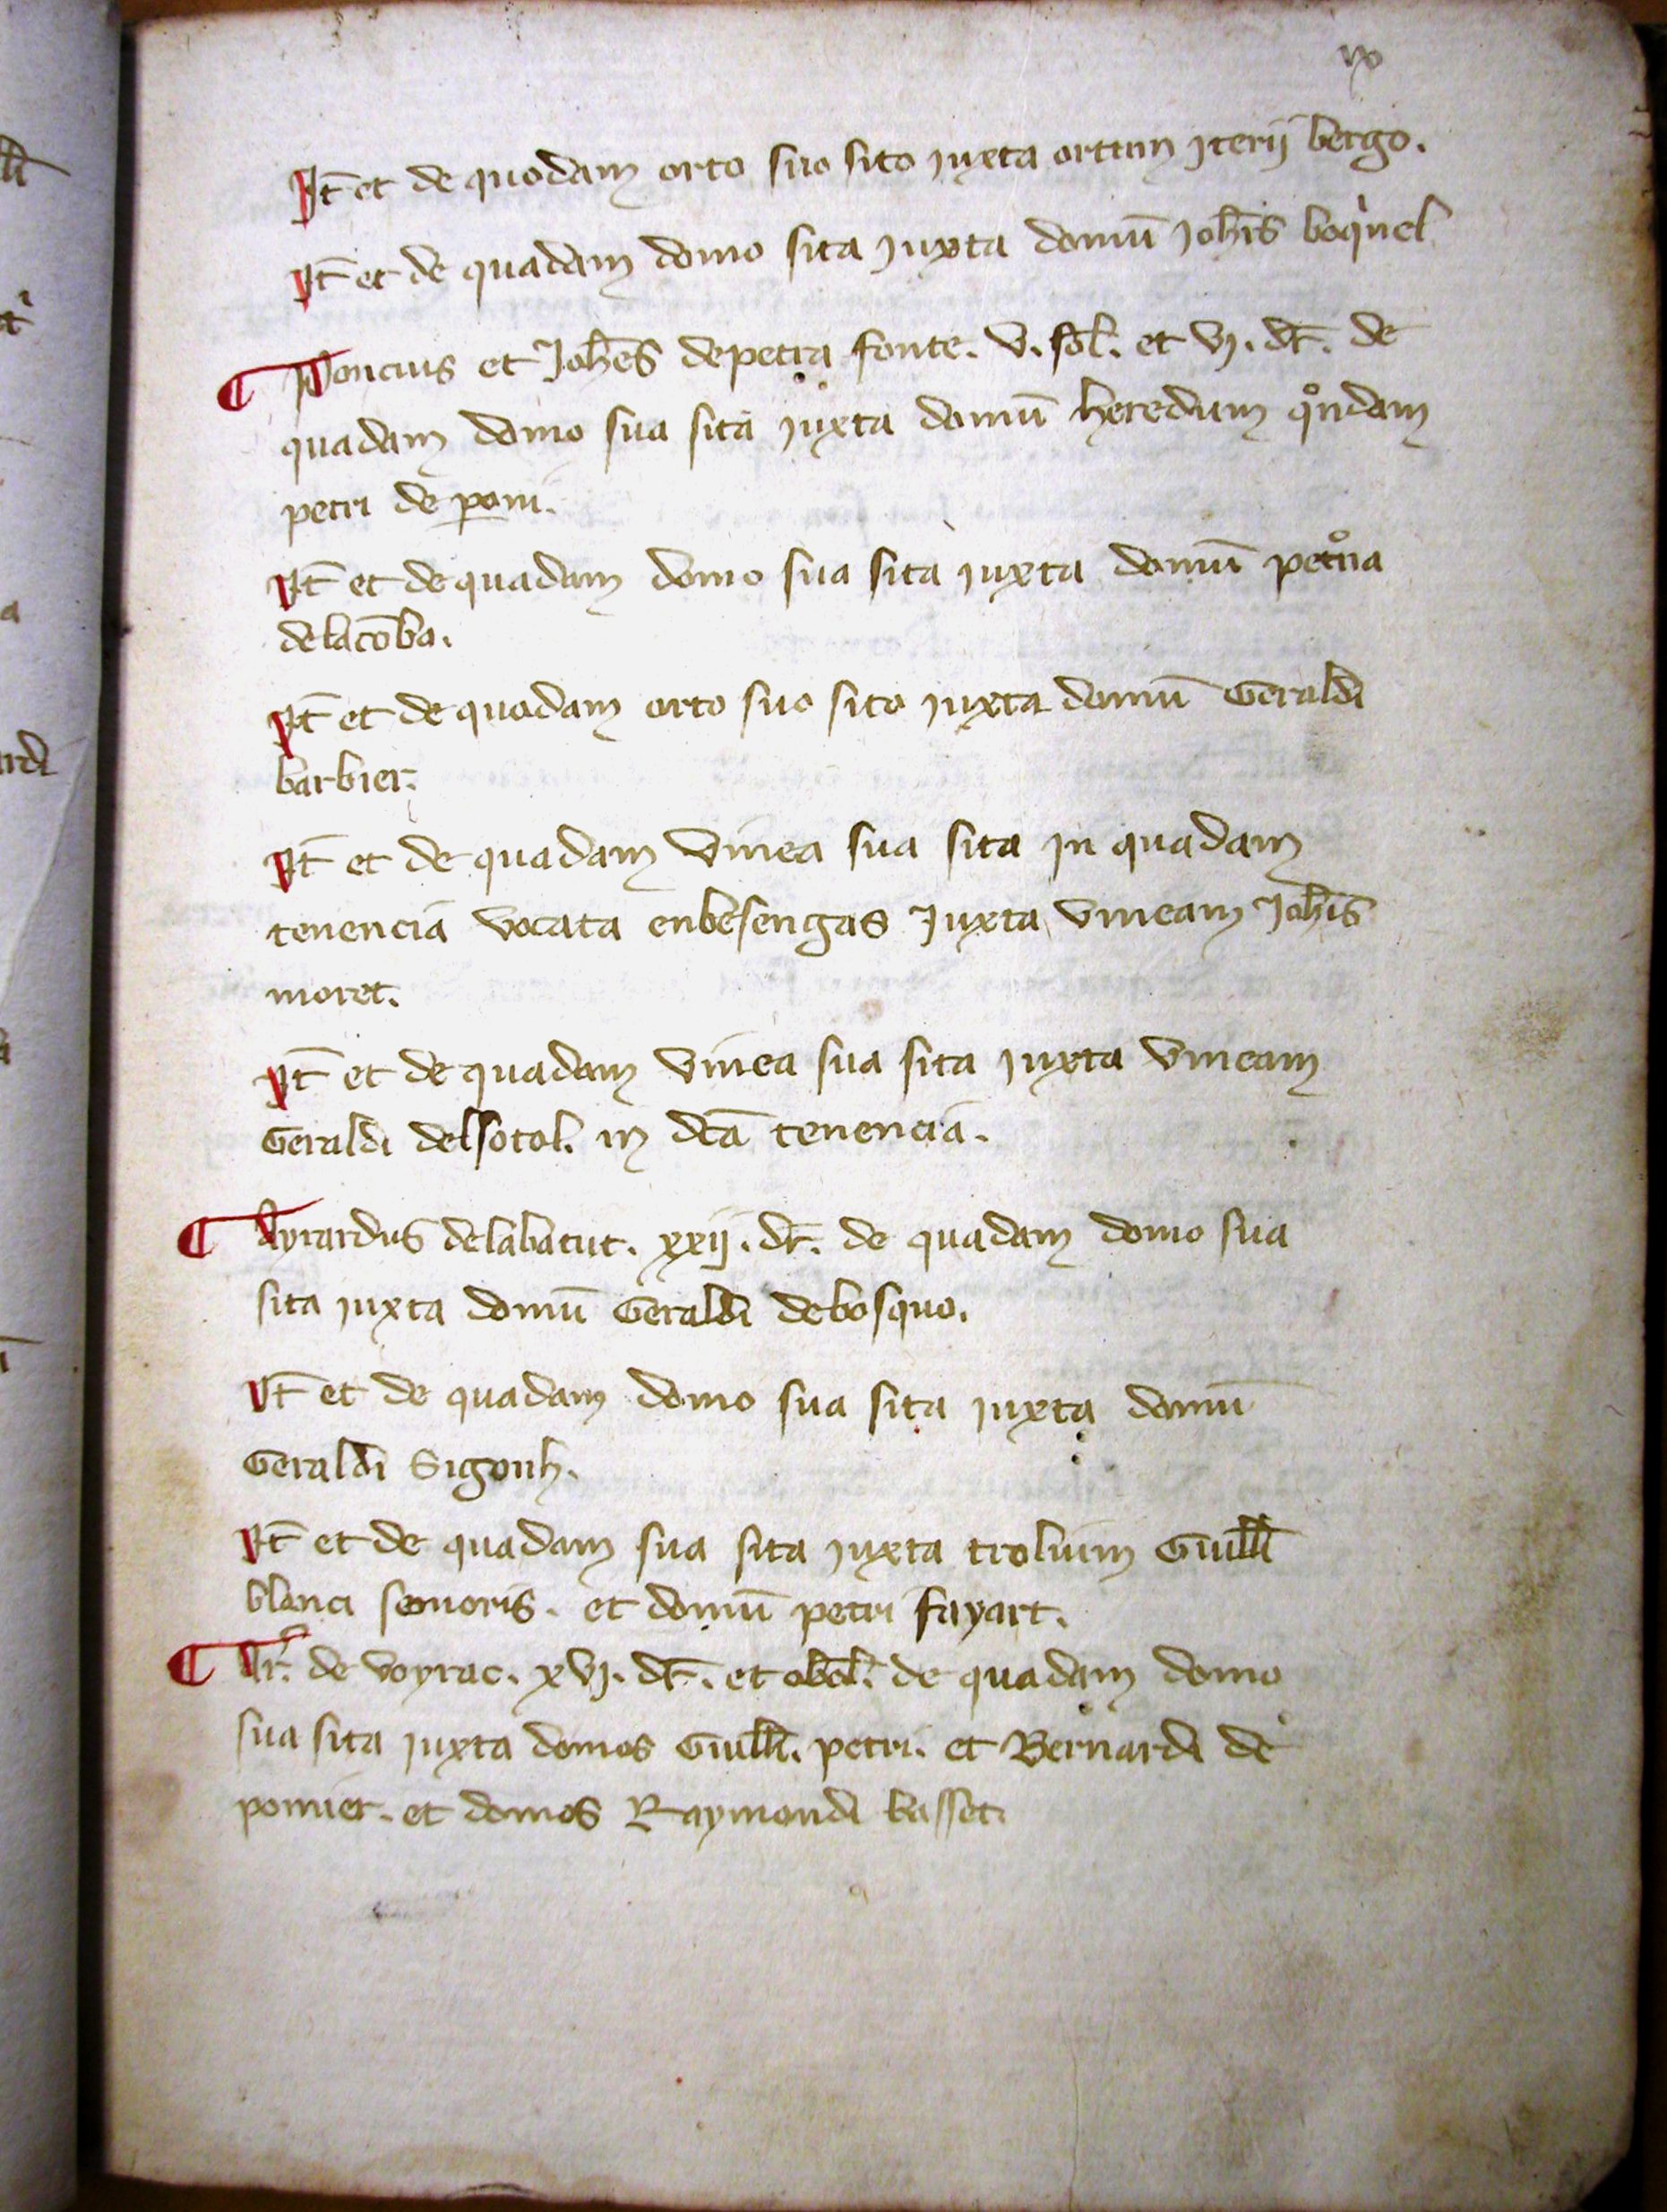 ix
It̄ et de quodam orto suo sito juxta ortum Jterij bergo.
It̄ et de quadam domo sita juxta domū Joh̄is boq̍nel
¶ Poncius et Joh̄es de petra fonte. v. sol̄. et vj. dr̄. de
quadam domo sua sita juxta domū heredum qͦndam
petri de
It̄ et de quadam domo sua sita juxta domū
delacōba.
It̄ et de quodam orto suo sito juxta domū Geraldi
barbier.
It̄ et de quadam vinea sua sita in quadam
tenencia vocata enbesengas Juxta vineam Joh̄is
moret.
It̄ et de quadam vinea sua sita juxta vineam
Geraldi delsotol. in dc̄a tenencia.
¶ Ayrardus delabatut. xxij. dr̄. de quadam domo sua
sita juxta domū Geraldi debosquo.
It̄ et de quadam domo sua sita juxta domū
Geraldi Sigonh.
It̄ et de quadam sua sita juxta trolium Guill̄i
blanci senioris. et domū petri fayart.
¶ Ar̄. de voyrac. xvj. dr̄. et obol̄. de quadam domo
sua sita juxta domos Guill̄i. petri. et Bernardi de
pomier. et domos Raymondi basset.